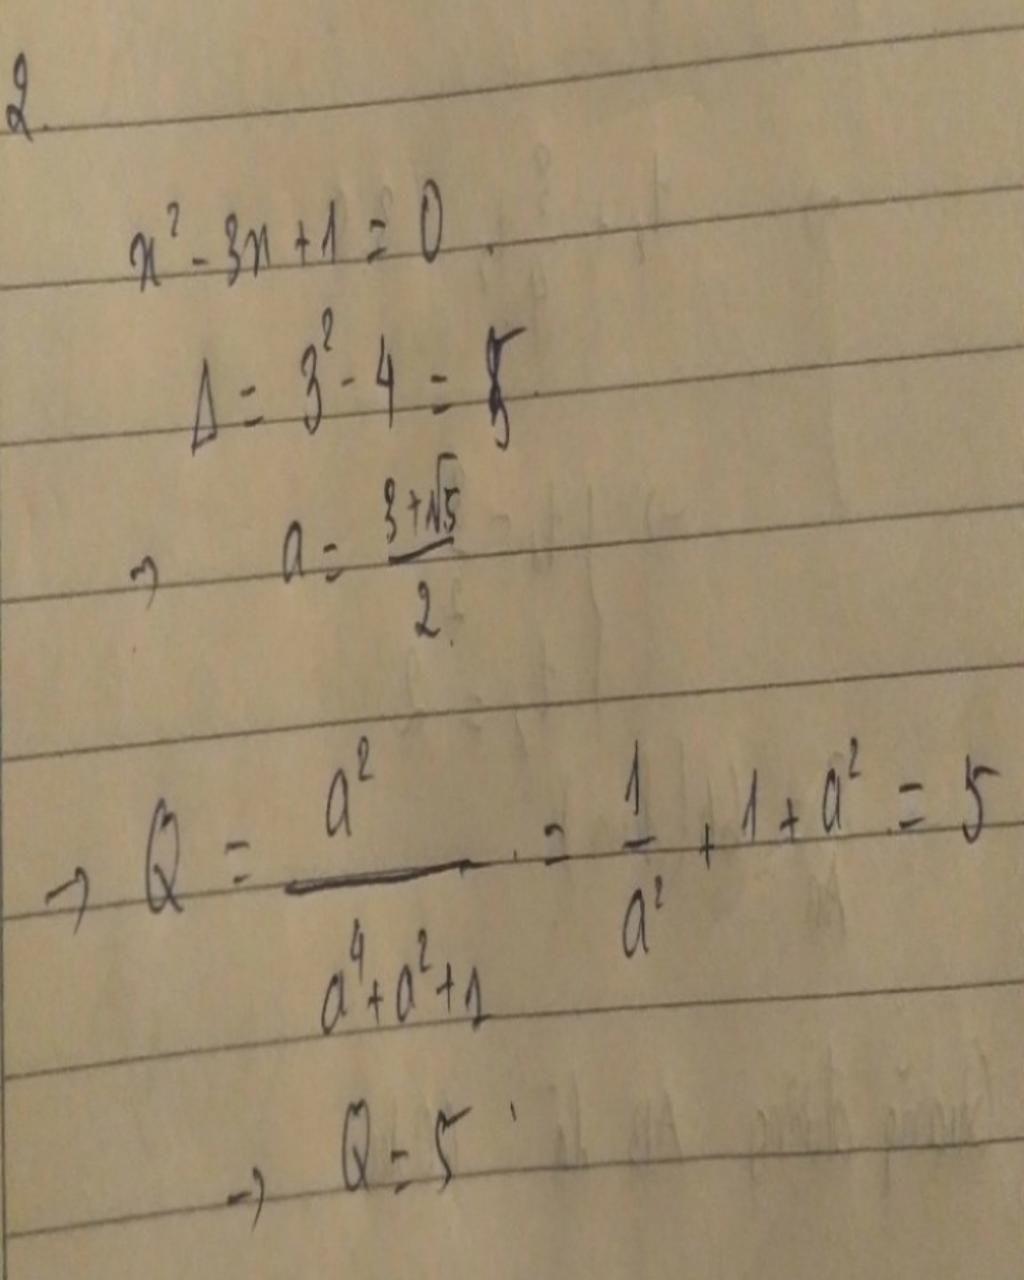 2.
x² - 3x + 1 = 0
Δ = 3² - 4 = 5
→ a = (3 + √5)/2
→ Q = a²/(a⁴ + a² + 1) = 1/a² + 1 + a² = 5
→ Q = 5